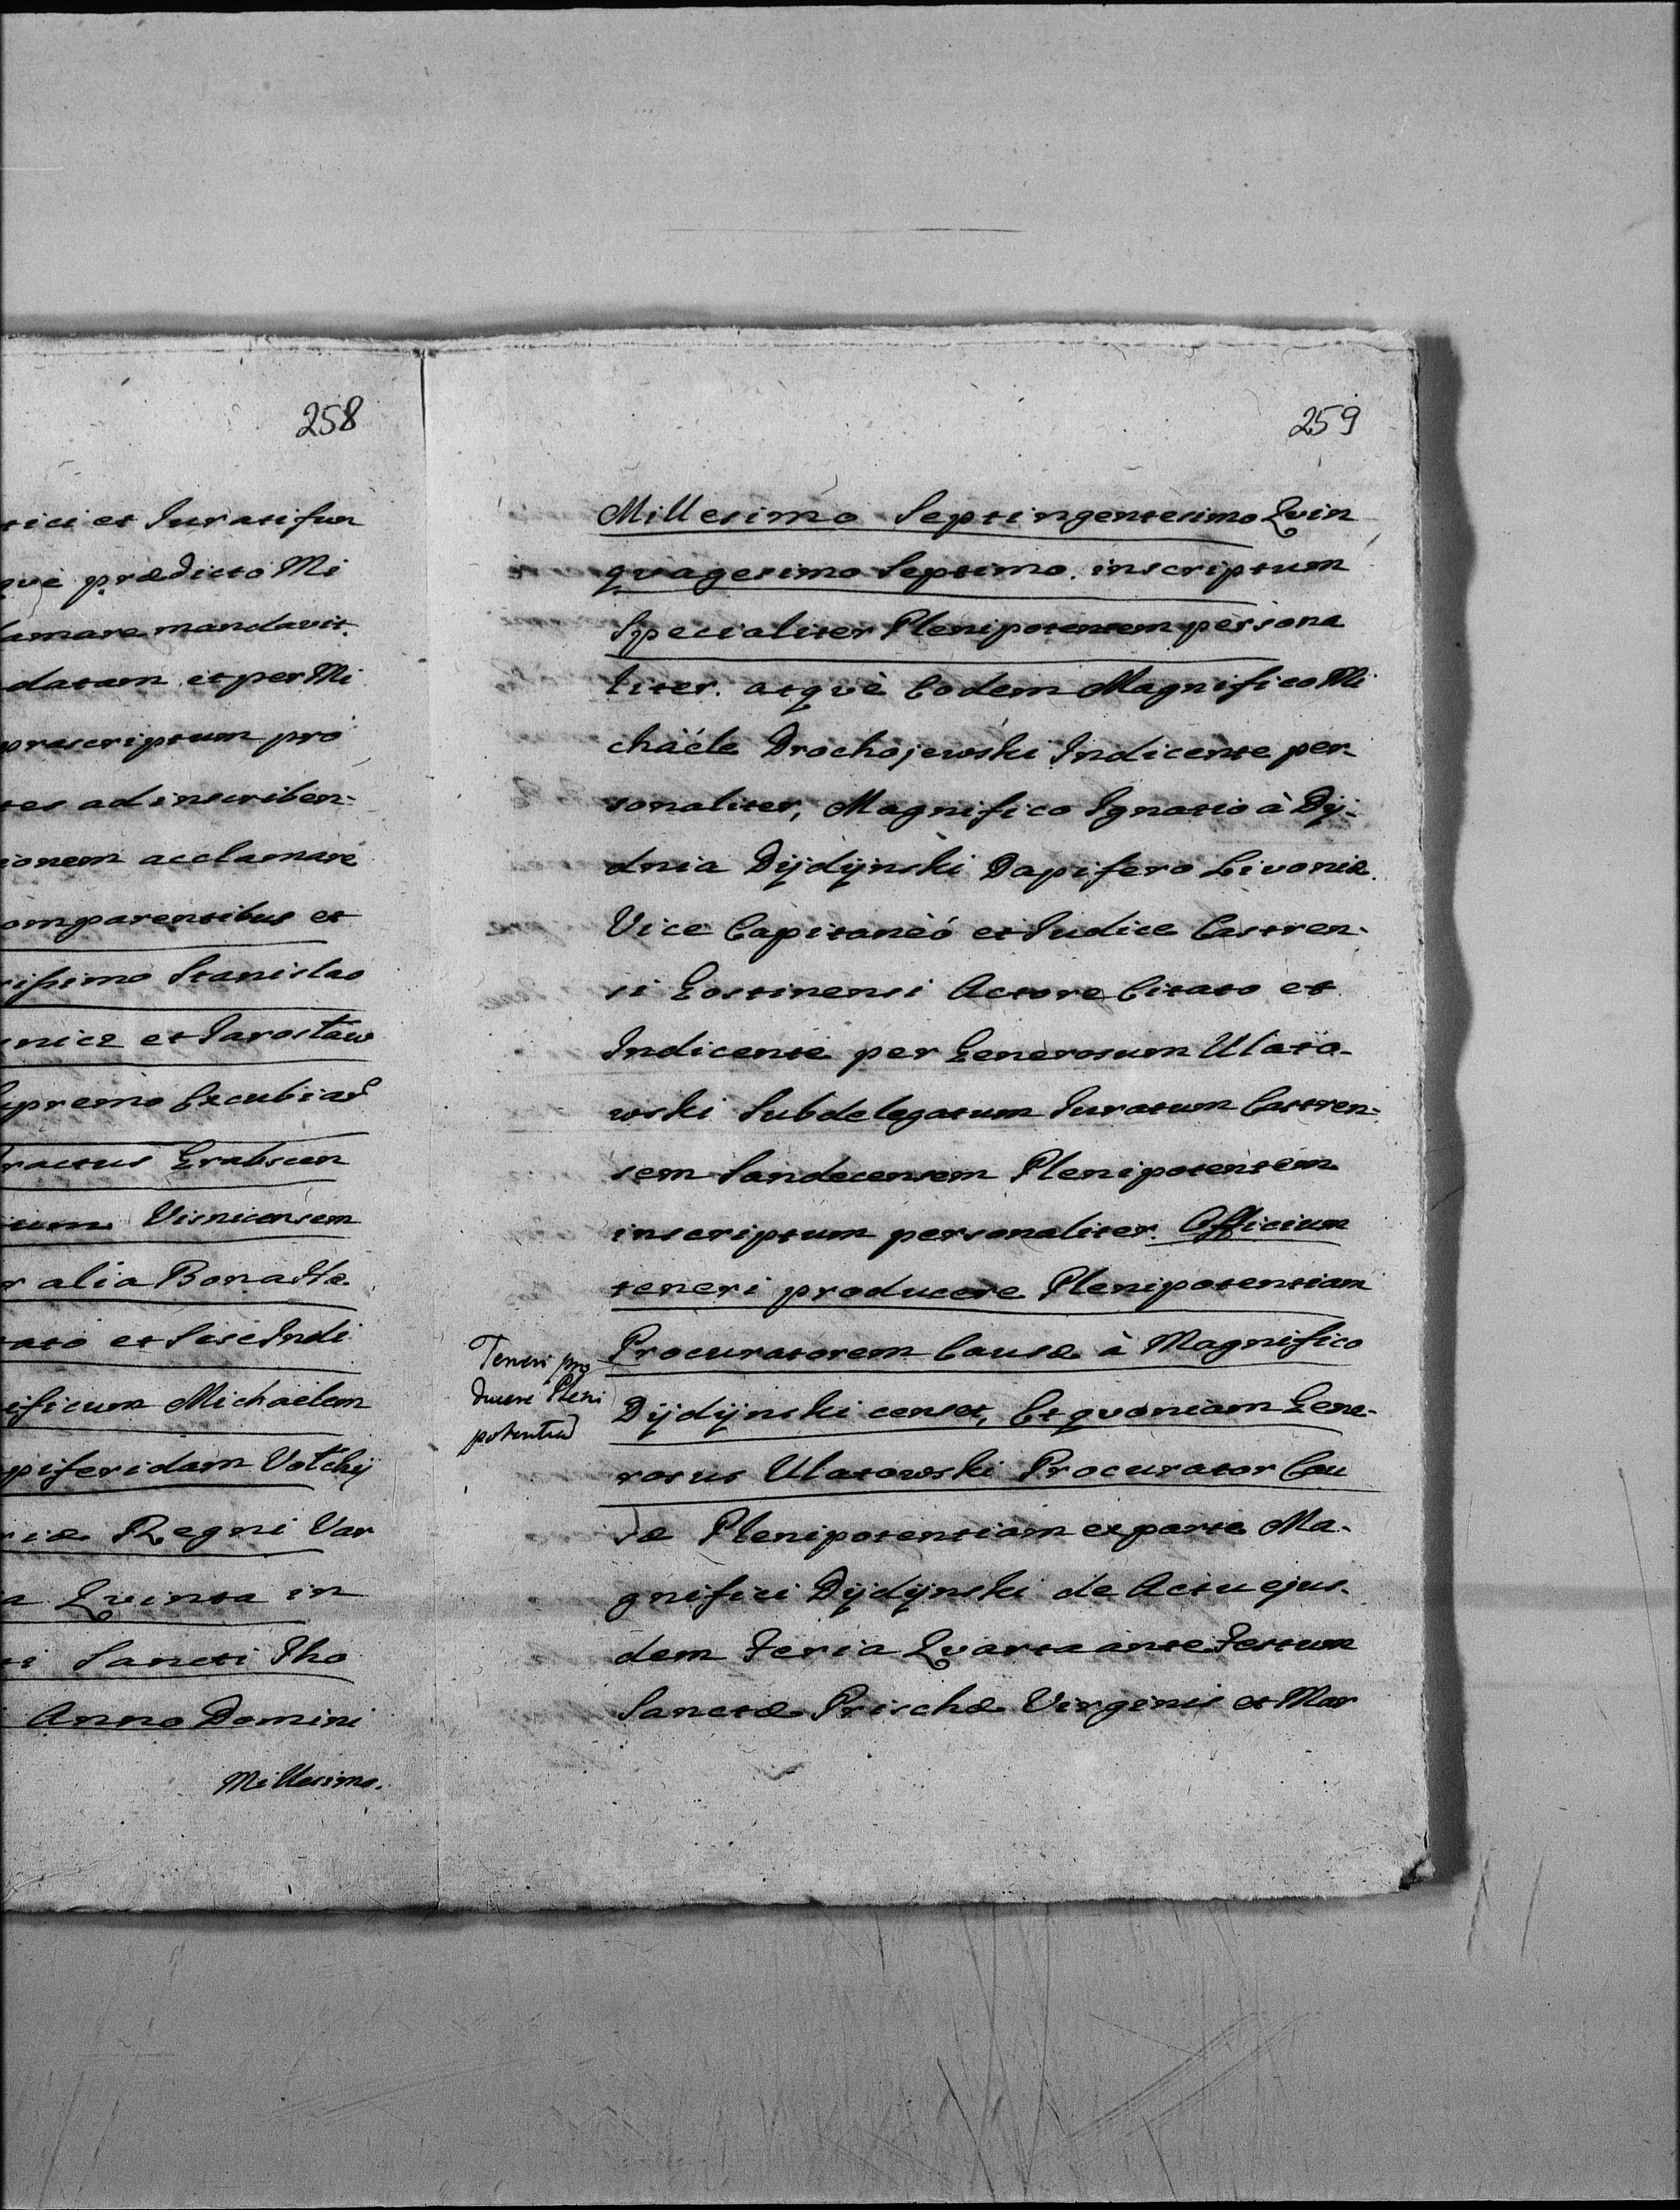 258
tici et Iurati fun
que prædicto Mi
lamare mandavit.
datam et per Mi
præscriptum pro
tes ad inscriben-
ionem acclamare
omparentibus et
rissimo Stanislao
nice et Jarosław
upremo Excubiar
Tractus Grabscen
Visnicensem
r alia Bona Hæ
tato et sese Indi
ificum Michaelem
piferidam Volchÿ
riæ Regni Var
a Qvinta in
ti Sancti Tho
Anno Domini
Millesimo.
259
Millesimo Septingentesimo Qvin
qvagesimo Septimo. inscriptum
Specialiter Plenipotentem persona
liter. atqvè Eodem Magnifico Mi
chaële Drochojewski Indicente per-
sonaliter, Magnifico Ignatio à Dÿ-
dnia Dÿdÿnski Dapifero Livoniæ.
Vice Capitaneó et Iudice Castren-
si Gostinensi Actore Citato et
Indicente per Generosum Ulato-
wski Subdelegatum Iuratum Castren-
sem Sandecensem Plenipotentem
inscriptum personaliter. Officium
teneri producere Plenipotentiam
Procuratorem Causæ à Magnifico
Dÿdÿnski censet, Et qvoniam Gene-
rosus Ulatowski Procurator Cau
sæ Plenipotentiam ex parte Ma-
gnifici Dÿdÿnski de Actu ejus-
dem Feria Qvarta ante Festum
Sanctæ Prischæ Virginis et Mar
Teneri pro
ducere Pleni
potentia